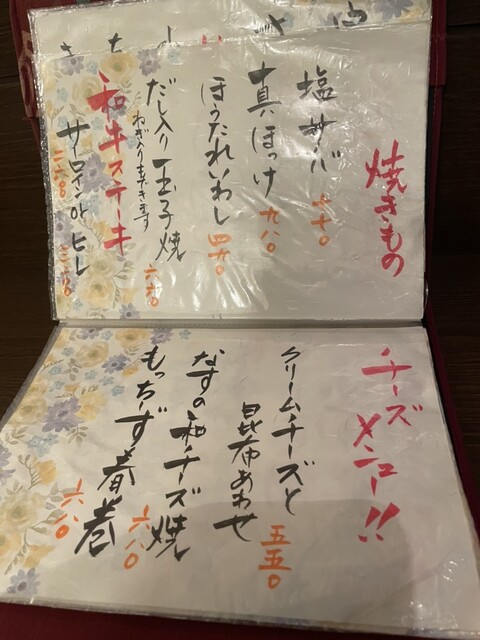 焼きもの
塩サバ
真ほっけ 九八〇
ほうたれいわし 四九〇
だし入り玉子焼 六八〇
ねぎ入りもできます
和牛ステーキ
サーロイン or ヒレ
チーズメニュー!!
クリームチーズと
昆布あわせ 五五〇
なすの和チーズ焼 六八〇
もっちーず春巻 六八〇